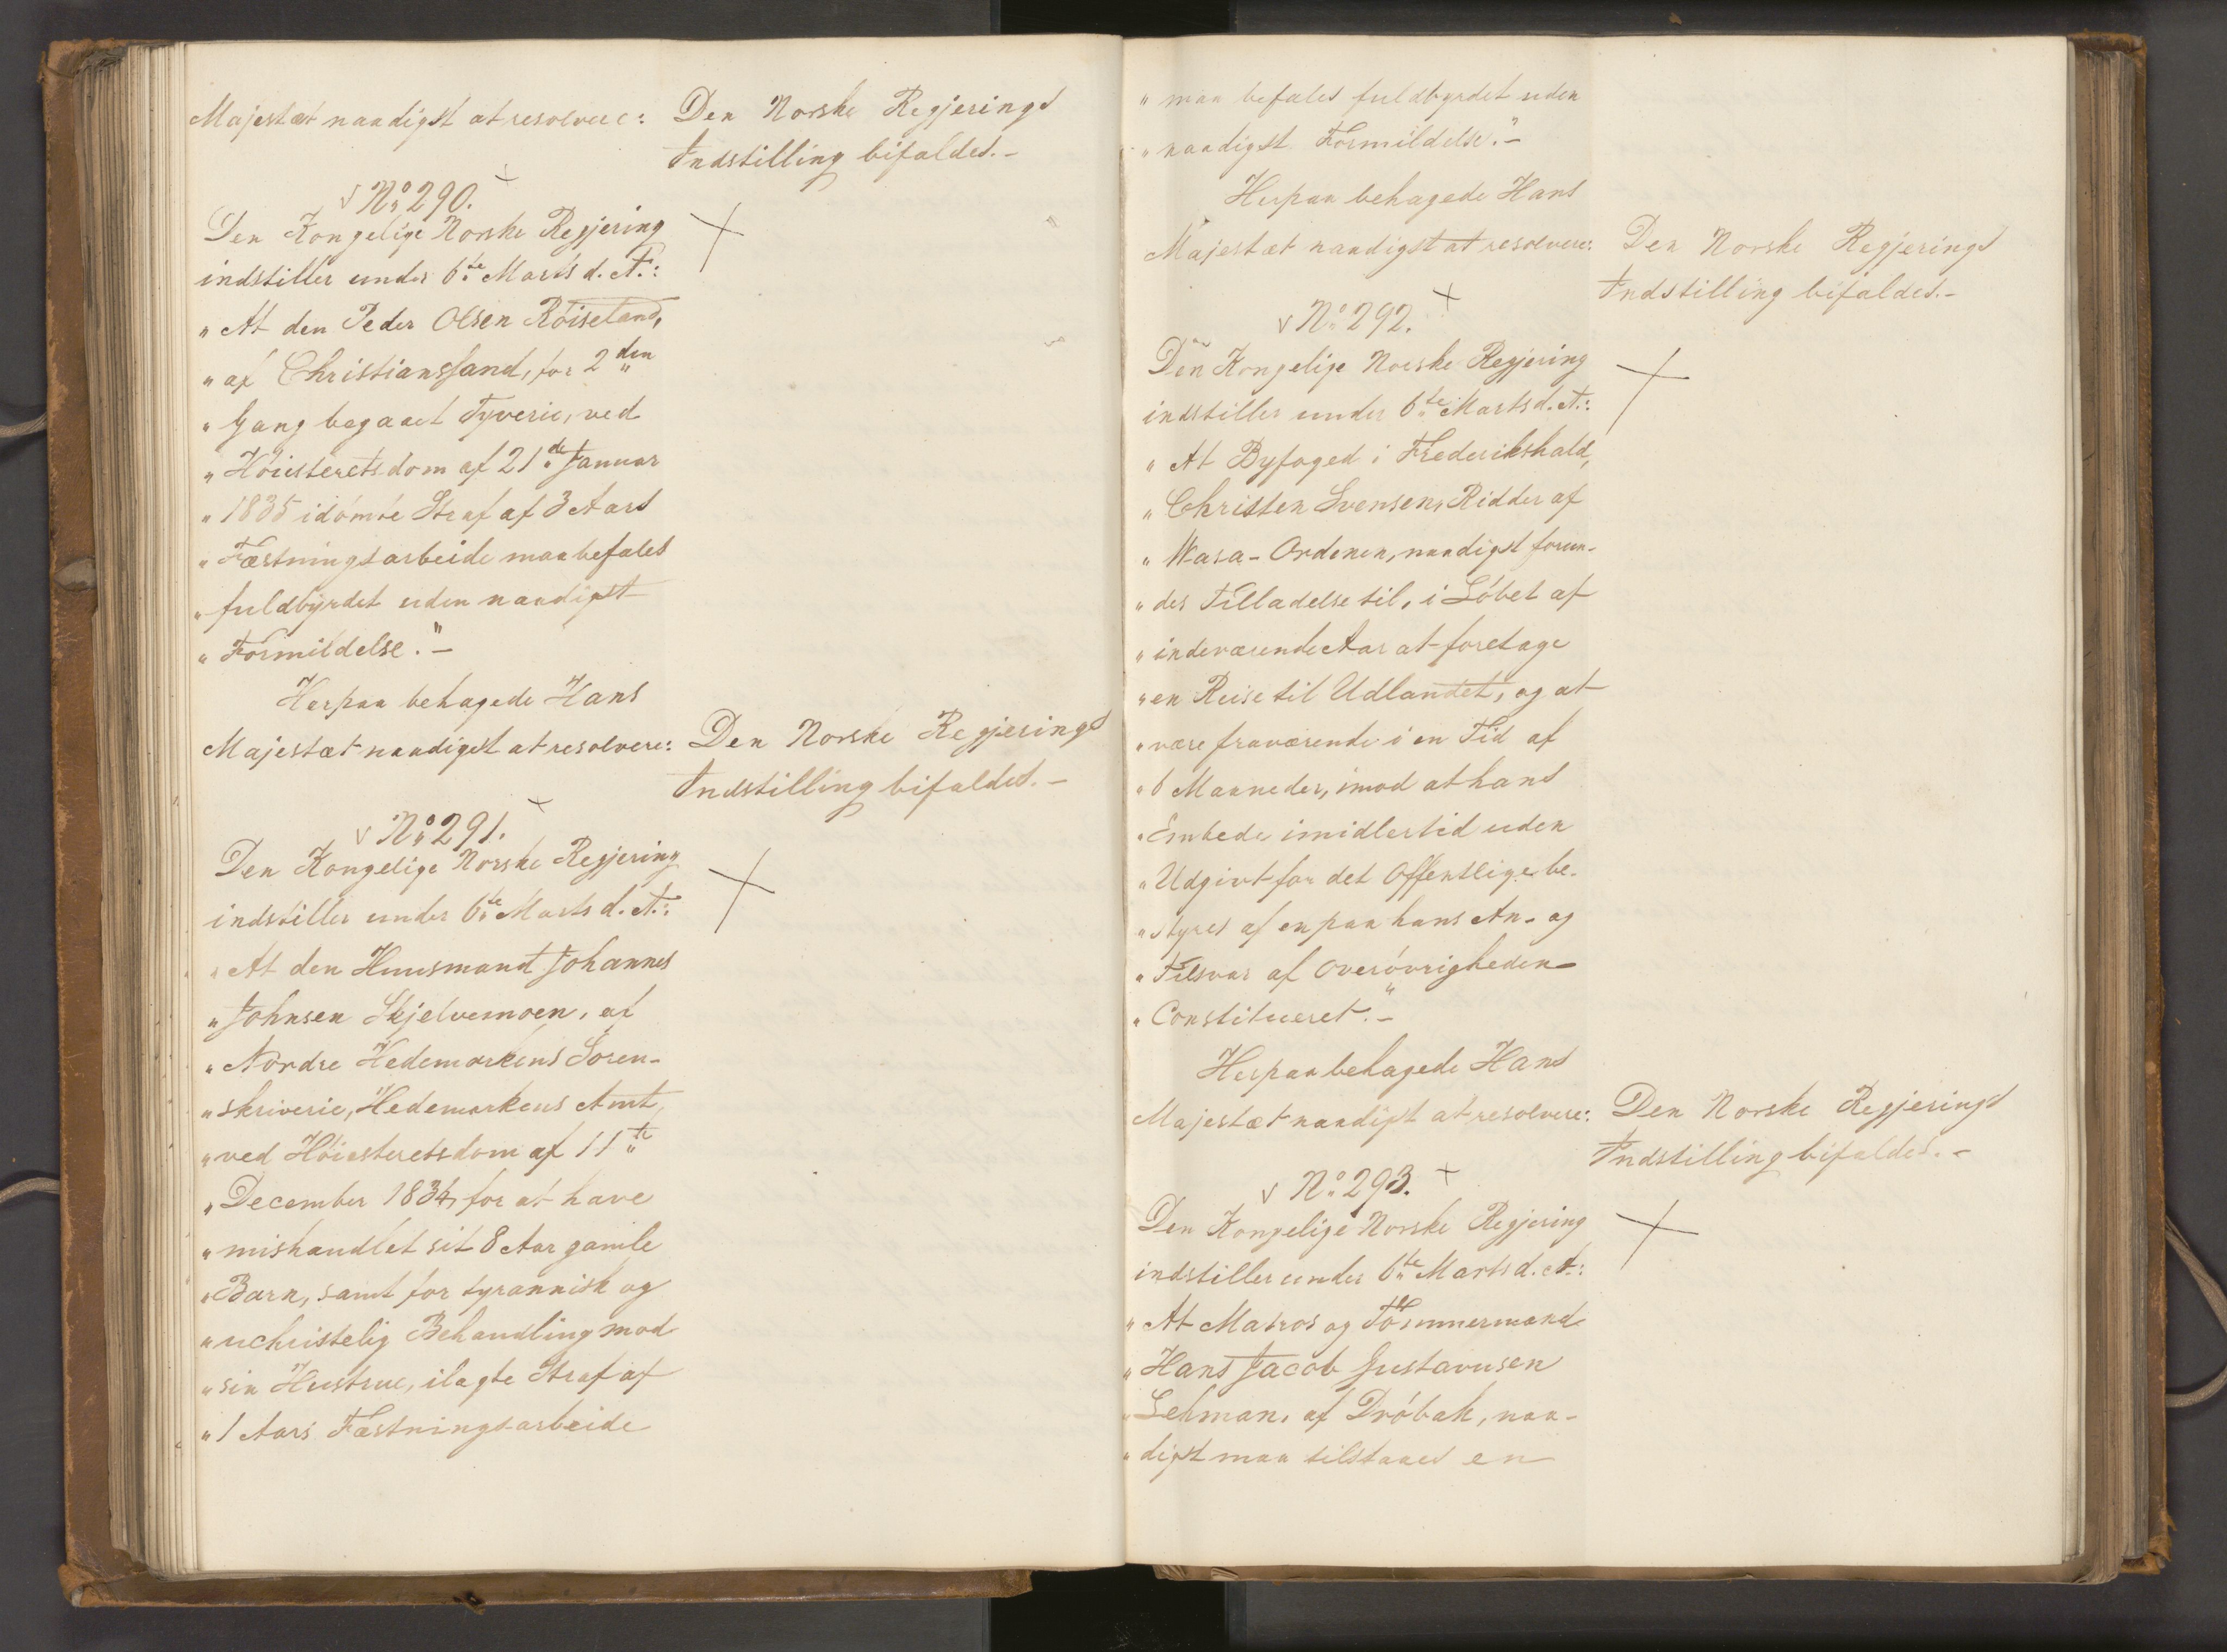 Majestæt naadigst at resolvere:
Den Norske Regjerings
Indstilling bifaldes.-
No 290.
Den Kongelige Norske Regjering
indstiller under 6te Marts d. A.:
"At den Peder Olsen Röiseland,
"af Christianssand, for 2den
"Gang begaaet Tyverie, ved
"Höiesteretsdom af 21de Januar
"1835 idömte Straf af 3 Aars
"Fæstningsarbeide maa befales
"fuldbyrdet uden naadigst
"Formildelse."-
Herpaa behagede Hans
Majestæt naadigst at resolvere:
Den Norske Regjerings
Indstilling bifaldes.-
No 291.
Den Kongelige Norske Regjering
indstiller under 6te Marts d. A.:
"At den Huusmand Johannes
"Johnsen Skjelvemoen, af
"Nordre Hedemarkens Soren-
"skriverie, Hedemarkens Amt,
"ved Höiesteretsdom af 11te
"December 1834, for at have
"mishandlet sit 8 Aar gamle
"Barn, samt for tyrannisk og
"uchristelig Behandling mod
"sin Hustrue, ilagte Straf af
"1 Aars Fæstningsarbeide
"maa befales fuldbyrdet uden
"naadigst Formildelse."-
Herpaa behagede Hans
Majestæt naadigst at resolvere:
Den Norske Regjerings
Indstilling bifaldes.-
No 292.
Den Kongelige Norske Regjering
indstiller under 6te Marts d. A.:
"At Byfoged i Frederikshald,
"Christen Svensen, Ridder af
"Wasa-Ordenen, naadigst forun-
"des Tilladelse til, i Löbet af
"indeværende Aar at foretage
"en Reise til Udlandet, og at
"være fraværende i en Tid af
"6 Maaneder, imod at hans
"Embede imidlertid uden
"Udgivt for det Offentlige be-
"styres af en paa hans An- og
"Tilsvar af Overövrigheden
"Constitueret."-
Herpaa behagede Hans
Majestæt naadigst at resolvere:
Den Norske Regjerings
Indstilling bifaldes.-
No 293.
Den Kongelige Norske Regjering
indstiller under 6te Marts d. A.:
"At Matros og Tömmermand
"Hans Jacob Gustavusen
"Lehman, af Dröbak, naa-
"digst maa tilstaaes en